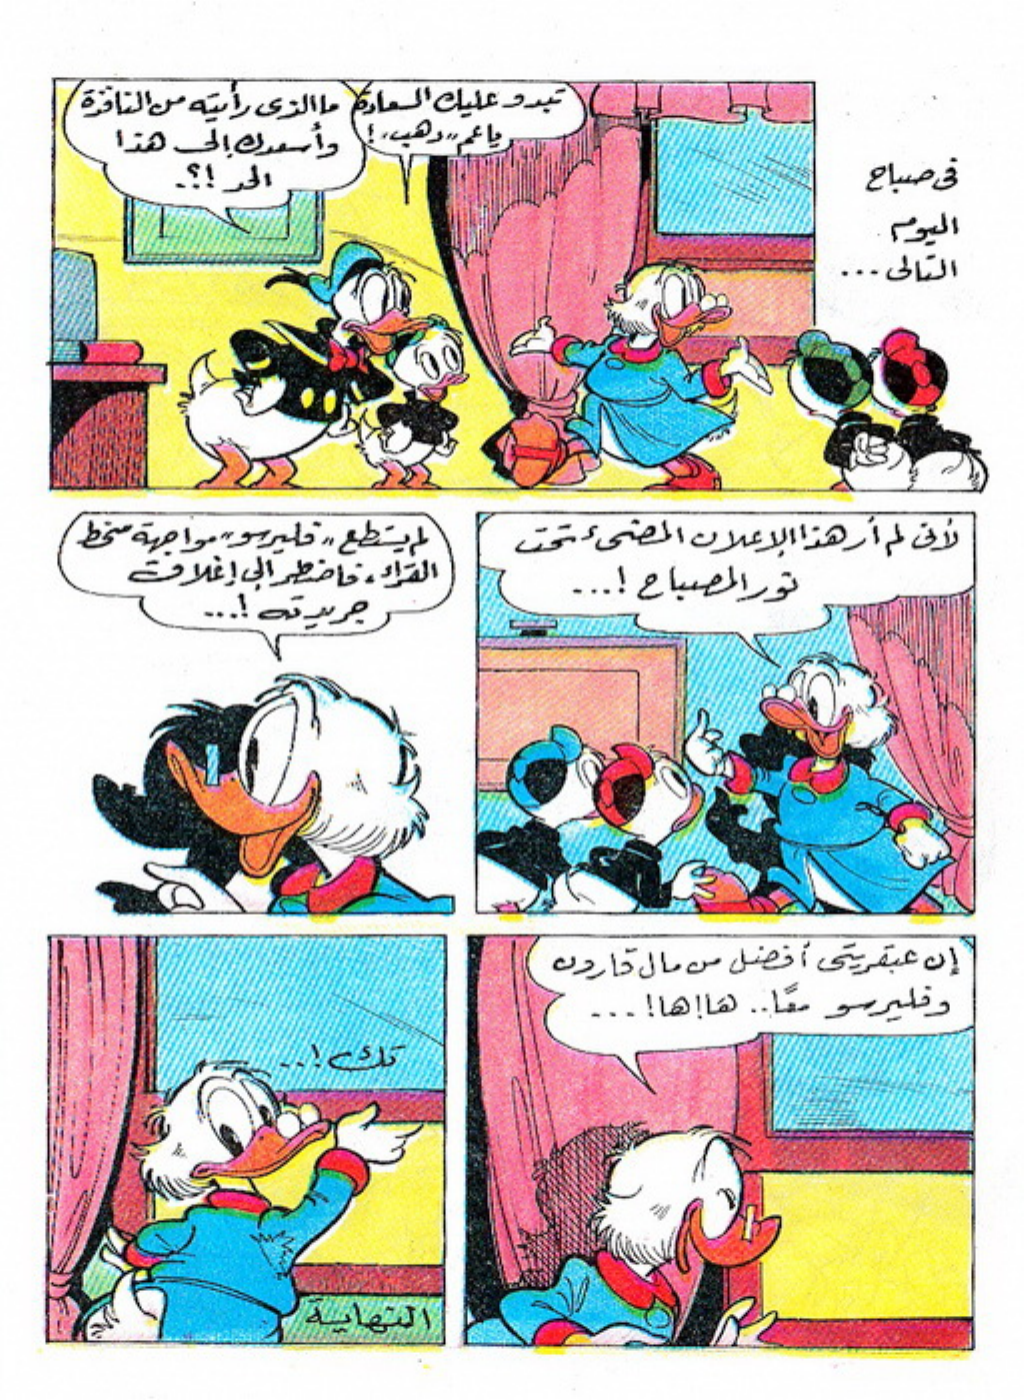 فى صباح
اليوم
التالى...
تبدو عليك السعادة
ياعم "دهب"!
ما الذى رأيته من النافذة
وأسعدك إلى هذا
الحد!؟..
لأنى لم أر هذا الإعلان المضىء تحت
نور المصباح!...
لم يستطع "فليرسو" مواجهة سخط
القراء، فاضطر إلى إغلاق
جريدته!...
إن عبقريتى أفضل من مال قارون
وفليرسو معًا.. ها!ها!...
تك!..
النهاية